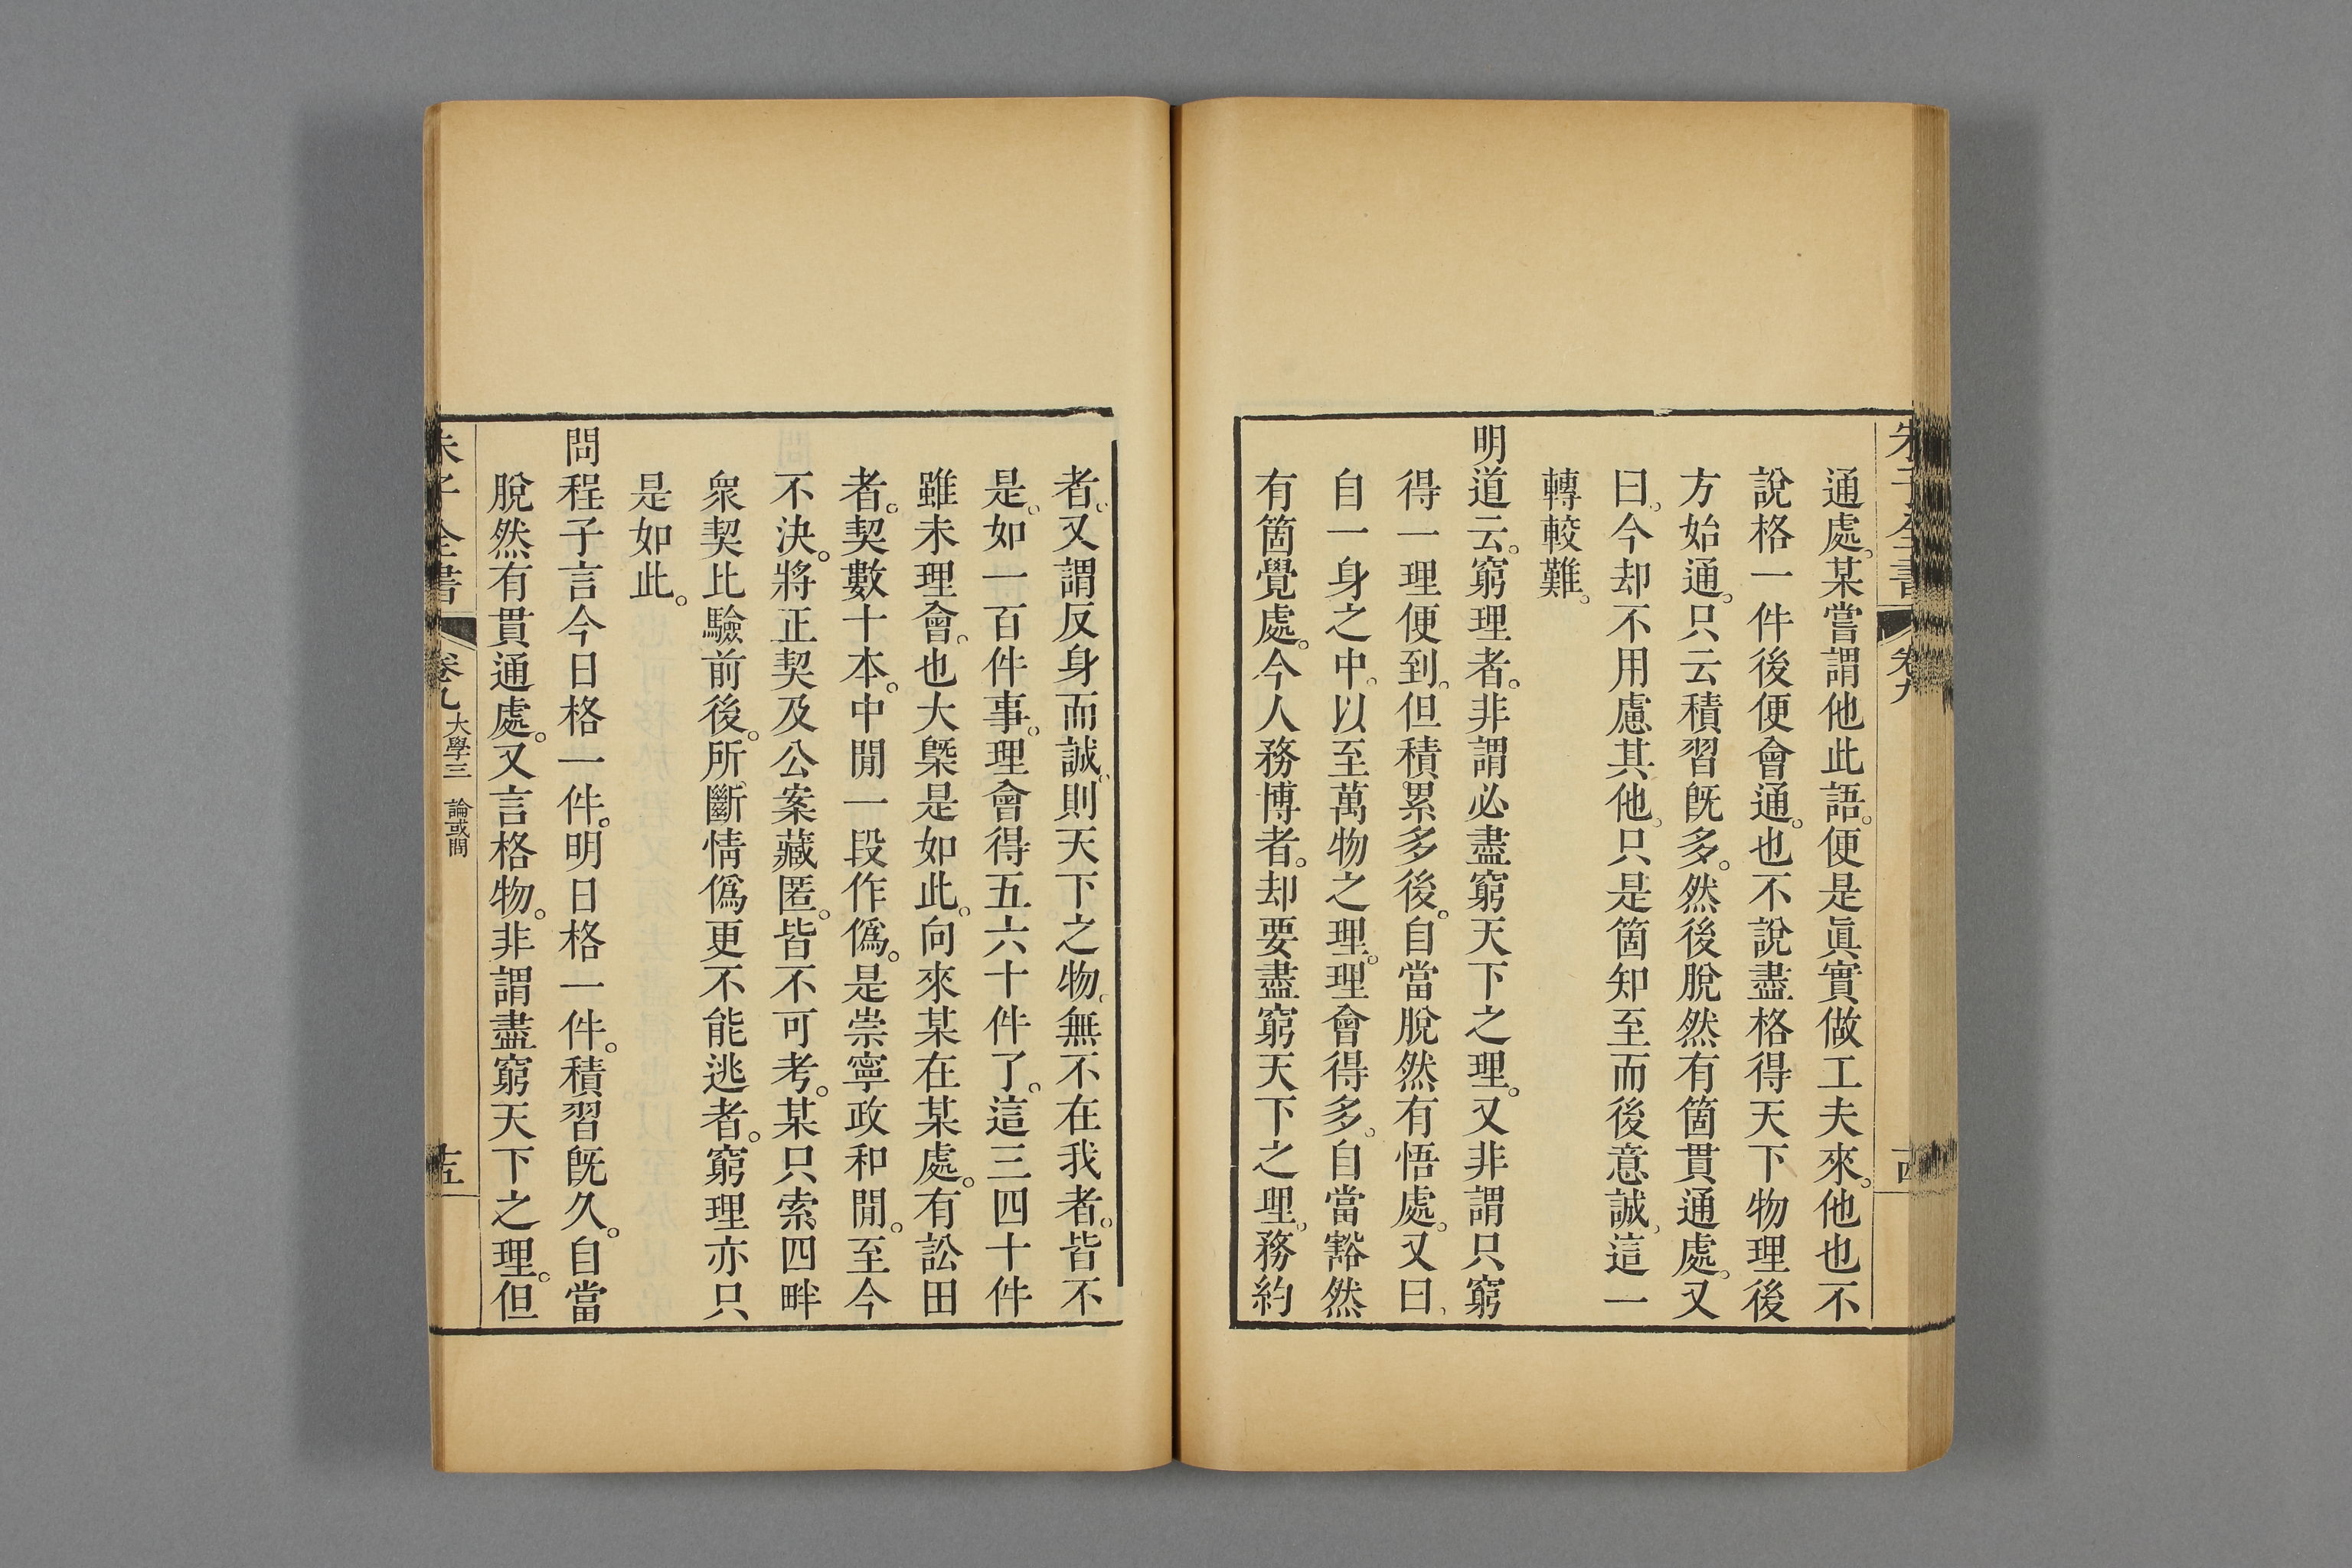 朱子全書 卷九 十四
通處。某嘗謂他此語。便是眞實做工夫來。他也不
說格一件後便會通。也不說盡格得天下物理後
方始通。只云積習旣多。然後脫然有箇貫通處。又
曰。今却不用慮其他。只是箇知至而後意誠。這一
轉較難。
明道云。窮理者。非謂必盡窮天下之理。又非謂只窮
得一理便到。但積累多後。自當脫然有悟處。又曰、
自一身之中。以至萬物之理。理會得多。自當豁然
有箇覺處。今人務博者。却要盡窮天下之理。務約
者。又謂反身而誠。則天下之物。無不在我者。皆不
是。如一百件事。理會得五六十件了。這三四十件
雖未理會。也大槩是如此。向來某在某處。有訟田
者。契數十本。中閒一段作僞。是崇寧政和閒。至今
不決。將正契及公案藏匿。皆不可考。某只索四畔
衆契比驗前後。所斷情僞更不能逃者。窮理亦只
是如此。
問程子言今日格一件。明日格一件。積習旣久。自當
脫然有貫通處。又言格物。非謂盡窮天下之理。但
朱子全書 卷九 大學三 論或問 十五